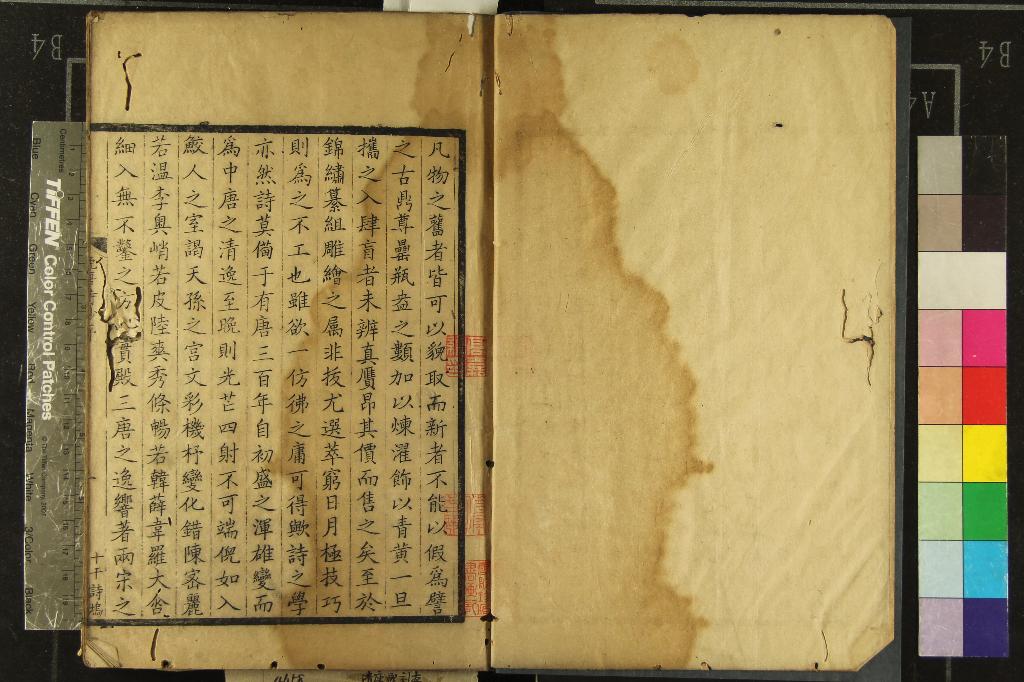 凡物之舊者皆可以貌取而新者不能以假爲譬
之古鼎尊罍瓶盎之類加以煉濯飾以青黄一旦
攜之入肆盲者未辨真贋昂其價而售之矣至於
錦繡纂組雕繪之属非拔尤選萃窮日月極技巧
則爲之不工也雖欲一仿彿之庸可得歟詩之學
亦然詩莫備于有唐三百年自初盛之渾雄變而
爲中唐之清逸至晚則光芒四射不可端倪如入
鮫人之室謁天孫之宫文彩機杼變化錯陳密麗
若温李奥峭若皮陸爽秀條暢若韓薛韋羅大含
細入無不鑿之賁殿三唐之逸響著兩宋之
十干詩塢
B4
B4
A4
Centimetres
TIFFEN Color Control Patches
Blue
Cyan
Green
Yellow
Red
Magenta
White
3/Color
Black